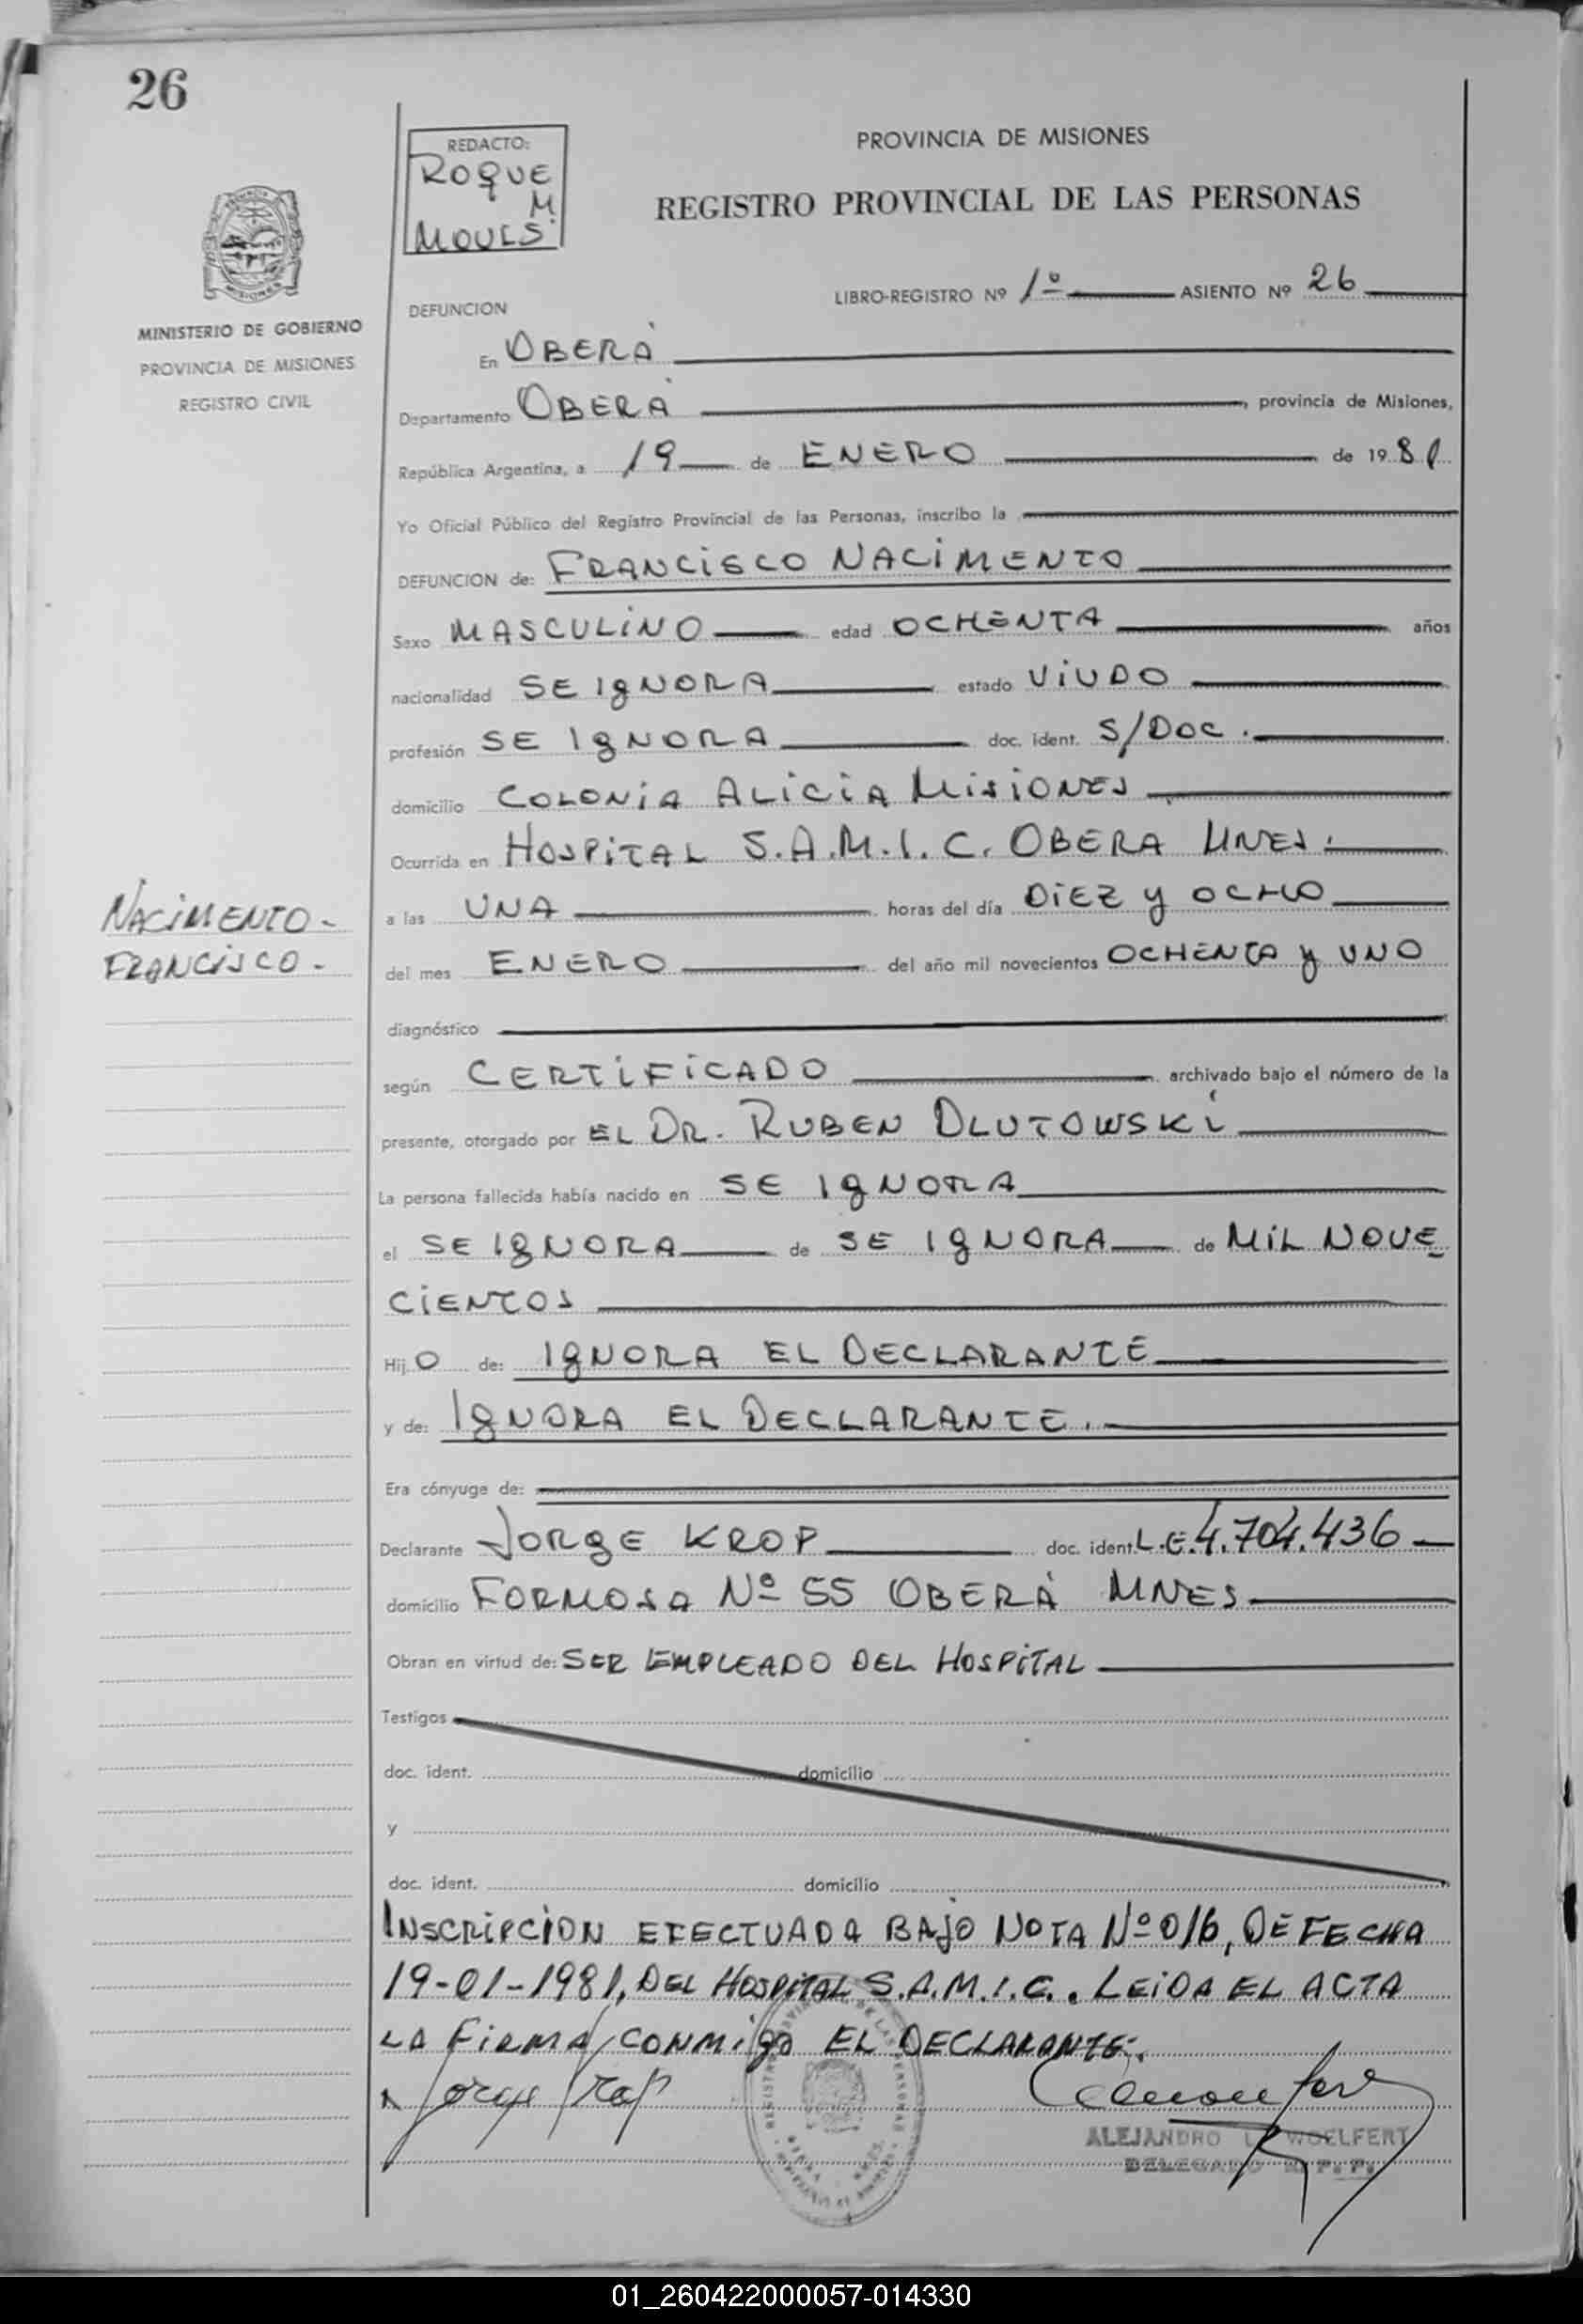 26
REDACTO:
ROQUE
M
MOVES
PROVINCIA DE MISIONES
REGISTRO PROVINCIAL DE LAS PERSONAS
LIBRO-REGISTRO Nº 1º ASIENTO Nº 26
MISIONES
MINISTERIO DE GOBIERNO
PROVINCIA DE MISIONES
REGISTRO CIVIL
DEFUNCION
En OBERÁ
Departamento OBERÁ, provincia de Misiones,
República Argentina, a 19 de ENERO de 1981
Yo Oficial Público del Registro Provincial de las Personas, inscribo la
DEFUNCION de: FRANCISCO NACIMENTO
Sexo MASCULINO edad OCHENTA años
nacionalidad SE IGNORA estado VIUDO
profesión SE IGNORA doc. ident. S/DOC.
domicilio COLONIA ALICIA MISIONES
Ocurrida en HOSPITAL S.A.M.I.C. OBERA MNES.
a las UNA horas del día DIEZ y OCHO
del mes ENERO del año mil novecientos OCHENTA y UNO
NACIMENTO-
FRANCISCO-
diagnóstico
según CERTIFICADO archivado bajo el número de la
presente, otorgado por EL DR. RUBEN DLUTOWSKI
La persona fallecida había nacido en SE IGNORA
el SE IGNORA de SE IGNORA de MIL NOVE
CIENTOS
Hij O de: IGNORA EL DECLARANTE
y de: IGNORA EL DECLARANTE.
Era cónyuge de:
Declarante JORGE KROP doc. ident. L.E. 4.704.436
domicilio FORMOSA Nº 55 OBERÁ MNES
Obran en virtud de: SER EMPLEADO DEL HOSPITAL
Testigos
doc. ident. domicilio
y
doc. ident. domicilio
INSCRIPCION EFECTUADA BAJO NOTA Nº 016, DE FECHA
19-01-1981, DEL HOSPITAL S.A.M.I.C.. LEIDA EL ACTA
LA FIRMA CONMIGO EL DECLARANTE.
Jorge Krop
ALEJANDRO L. WOELFERT
DELEGADO R. P. P.
01_260422000057-014330